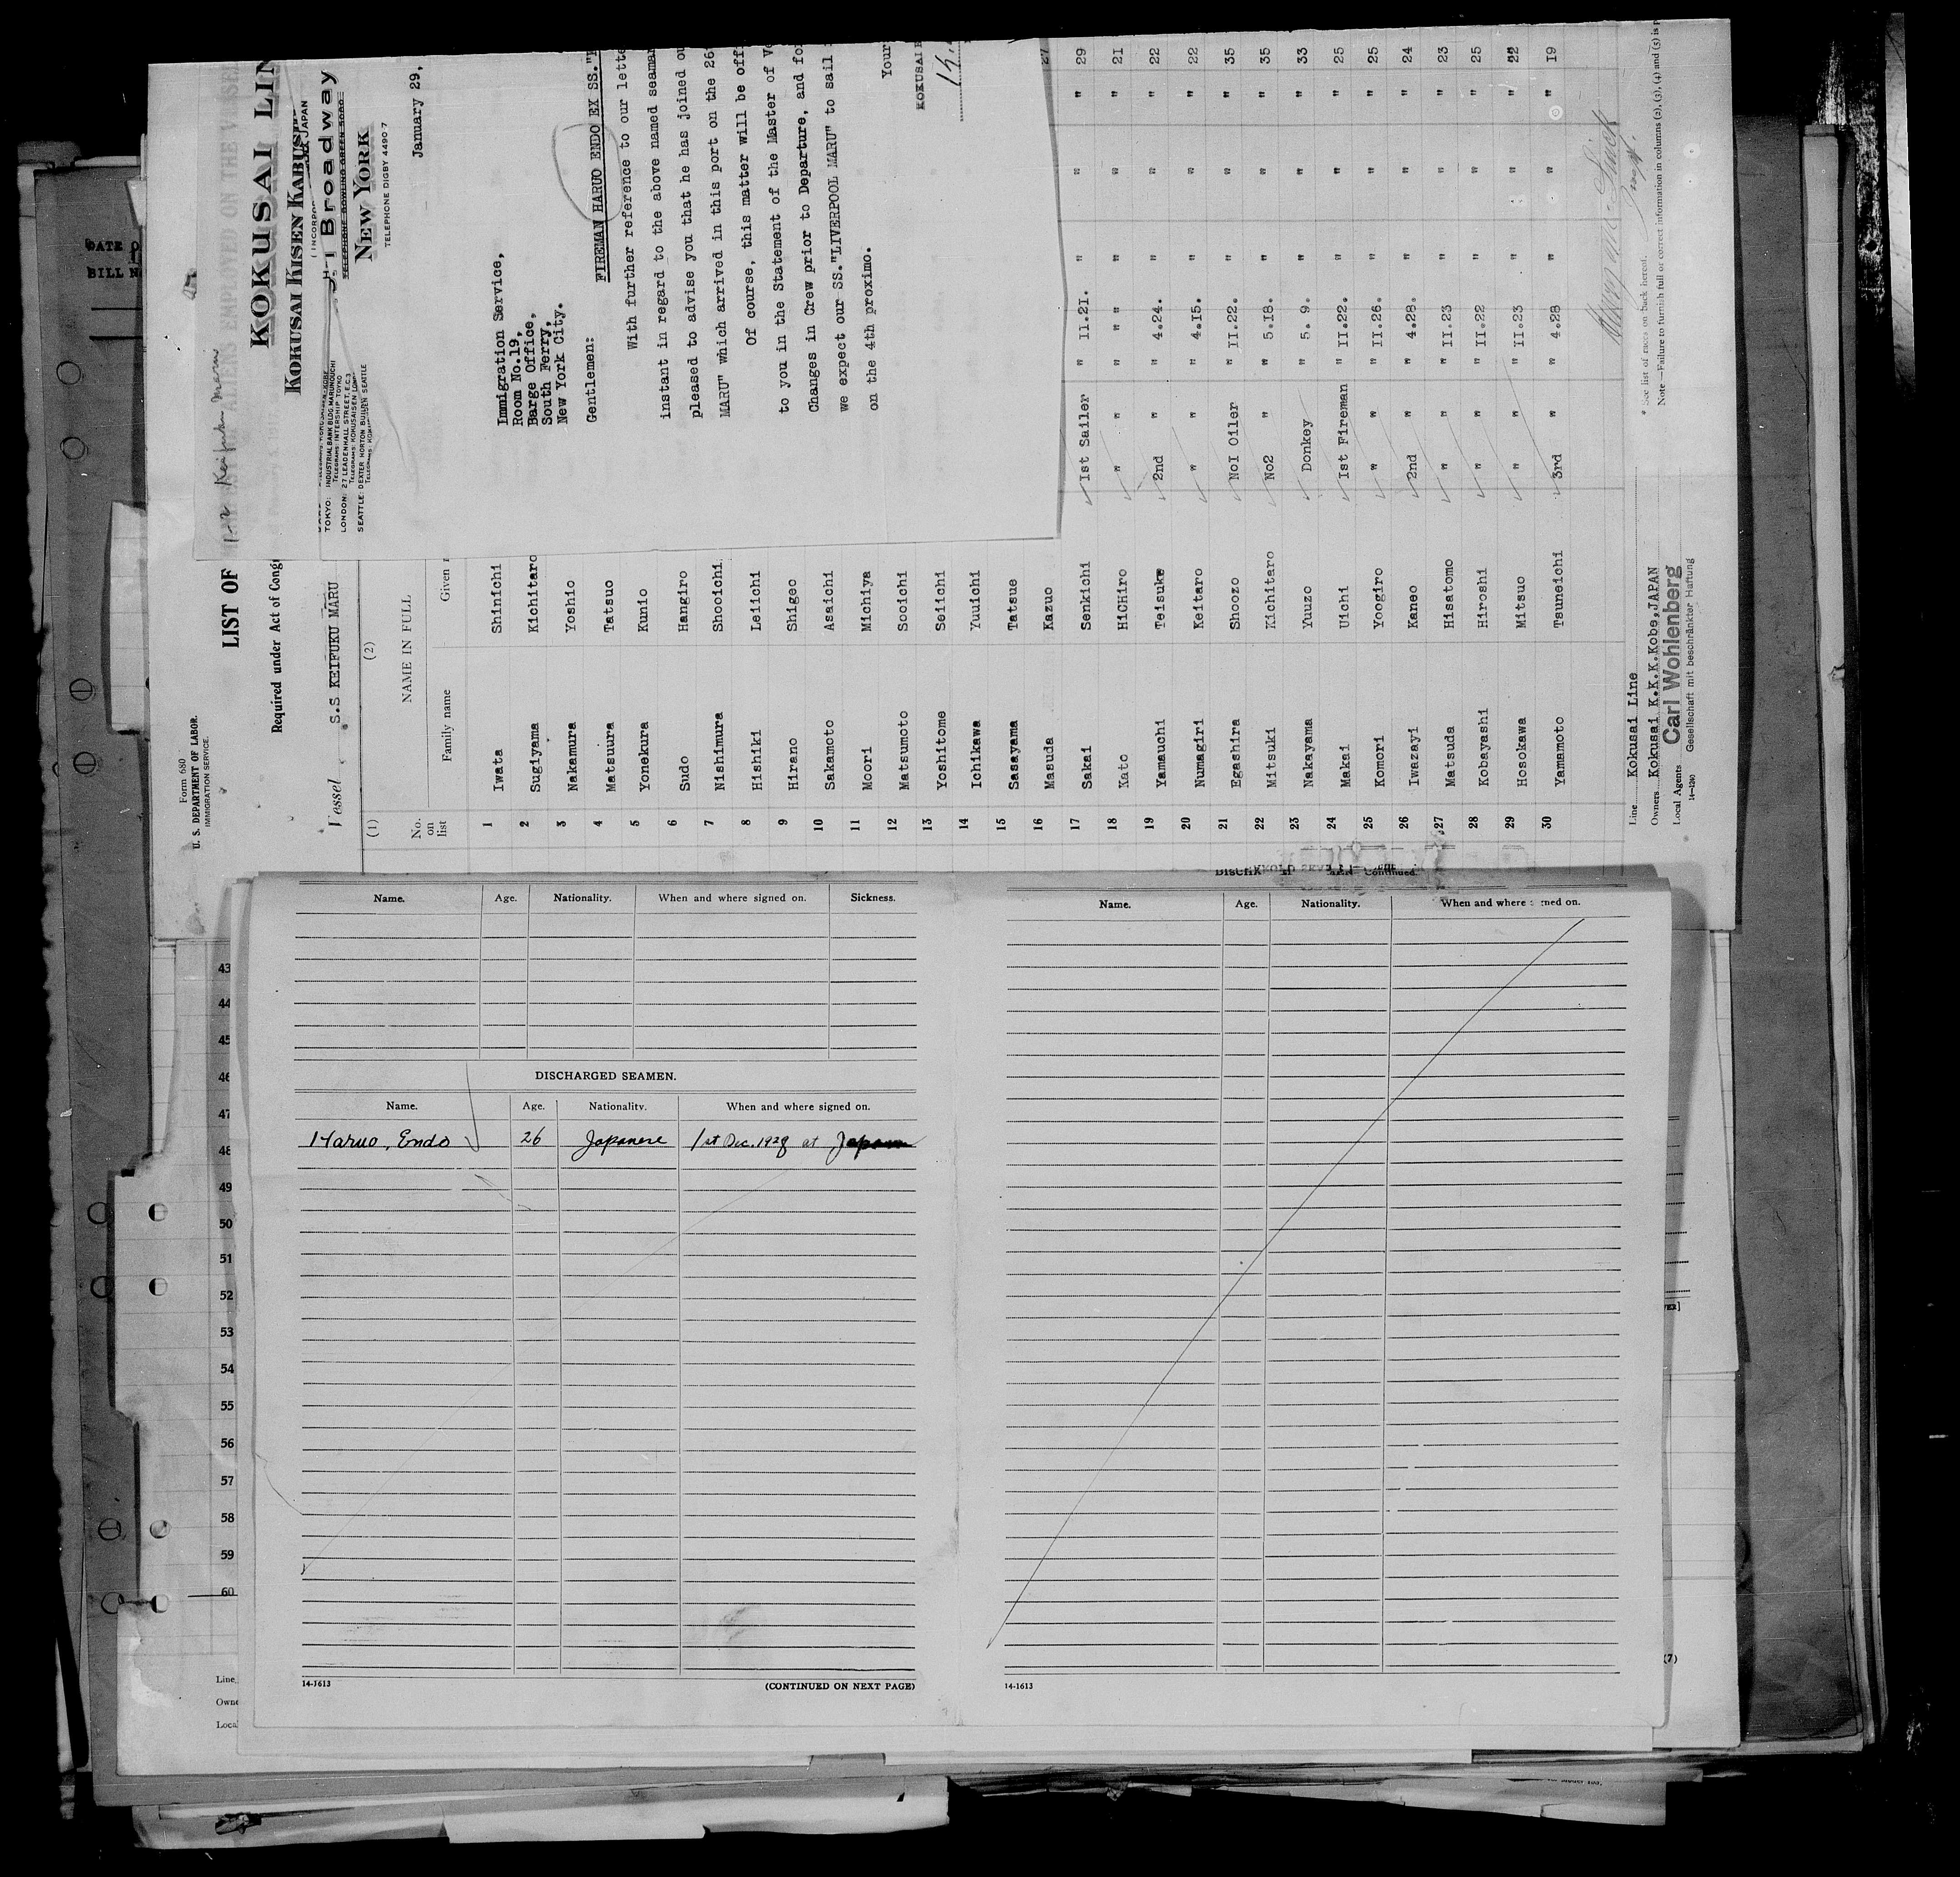 DATE
BILL
Form 680
U. S. DEPARTMENT OF LABOR.
IMMIGRATION SERVICE.
LIST OF ALIENS EMPLOYED ON THE VESSEL
Required under Act of Cong
Vessel S.S KEIFUKU MARU
Keifuku Maru
KOKUSAI LIN
KOKUSAI KISEN KABUS
(INCORPO JAPAN
1 Broadway
TELEPHONE BOWLING GREEN
NEW YORK
TELEPHONE DIGBY 4490-7
TOKYO: INDUSTRIAL BANK BLDG, MARUNOUCHI
TELEGRAMS: INTERSHIP TOYKO
LONDON: 27 LEADENHALL STREET, E.C.3
TELEGRAMS: KOKUSAISEN
SEATTLE: DEXTER HORTON BUILDIN SEATTLE
January 29,
Immigration Service,
Room No.19,
Barge Office,
South Ferry,
New York City.
Gentlemen:
FIREMAN HARUO ENDO EX SS."
With further reference to our lette
instant in regard to the above named seaman
pleased to advise you that he has joined ou
MARU" which arrived in this port on the 26
Of course, this matter will be offi
to you in the Statement of the Master of Ve
Changes in Crew prior to Departure, and fo
we expect our SS."LIVERPOOL MARU" to sail
on the 4th proximo.
Your
KOKUSAI
(1) (2)
No. on list NAME IN FULL
Family name Given
1 Iwata Shinichi
2 Sugiyama Kichitaro
3 Nakamura Yoshio
4 Matsuura Tatsuo
5 Yonekura Kunio
6 Sudo Hangiro
7 Nishimura Shooichi
8 Hishiki Leiichi
9 Hirano Shigeo
10 Sakamoto Asaichi
11 Moori Michiya
12 Matsumoto Sooichi
13 Yoshitome Seiichi
14 Ichikawa Yuuichi
15 Sasayama Tatsue
16 Masuda Kazuo 27
17 Sakai Senkichi 1st Sailer " II.21. " " " 29
18 Kato HiCHiro " " " " " " " " 21
19 Yamauchi Teisuke 2nd " " 4.24. " " " 22
20 Numagiri Keitaro " " " 4.15. " " " 22
21 Egashira Shoozo No1 Oiler " II.22. " " " 35
22 Mitsuki Kichitaro No2 " " 5.18. " " " 35
23 Nakayama Yuuzo Donkey " 5. 9. " " " 33
24 Makai Uichi Ist Fireman " II.22. " " " 25
25 Komori Yoogiro " " " II.26. " " " 25
26 Iwazayi Kaneo 2nd " " 4.28. " " " 24
27 Matsuda Hisatomo " " " II.23 " " " 23
28 Kobayashi Hiroshi " " " II.22 " " " 25
29 Hosokawa Mitsuo " " " II.23 " " " 22
30 Yamamoto Tsuneichi 3rd " " 4.28 " " " 19
Line Kokusai Line
Owners Kokusai K.K.K.Kobe,JAPAN
Local Agents Carl Wohlenberg
Gesellschaft mit beschränkter Haftung
14-1280
* See list of races on back hereof.
Note—Failure to furnish full or correct information in columns (2), (3), (4) and (5) is
43
44
45
46
47
48
49
50
51
52
53
54
55
56
57
58
59
60
Line
Owne
Loca
Name. Age. Nationality. When and where signed on. Sickness.
DISCHARGED SEAMEN.
Name. Age. Nationality. When and where signed on.
Haruo, Endo 26 Japanese 1st Dec. 1928 at Japan
14-1613
(CONTINUED ON NEXT PAGE)
Continued.
Name. Age. Nationality. When and where signed on.
14-1613
(7)